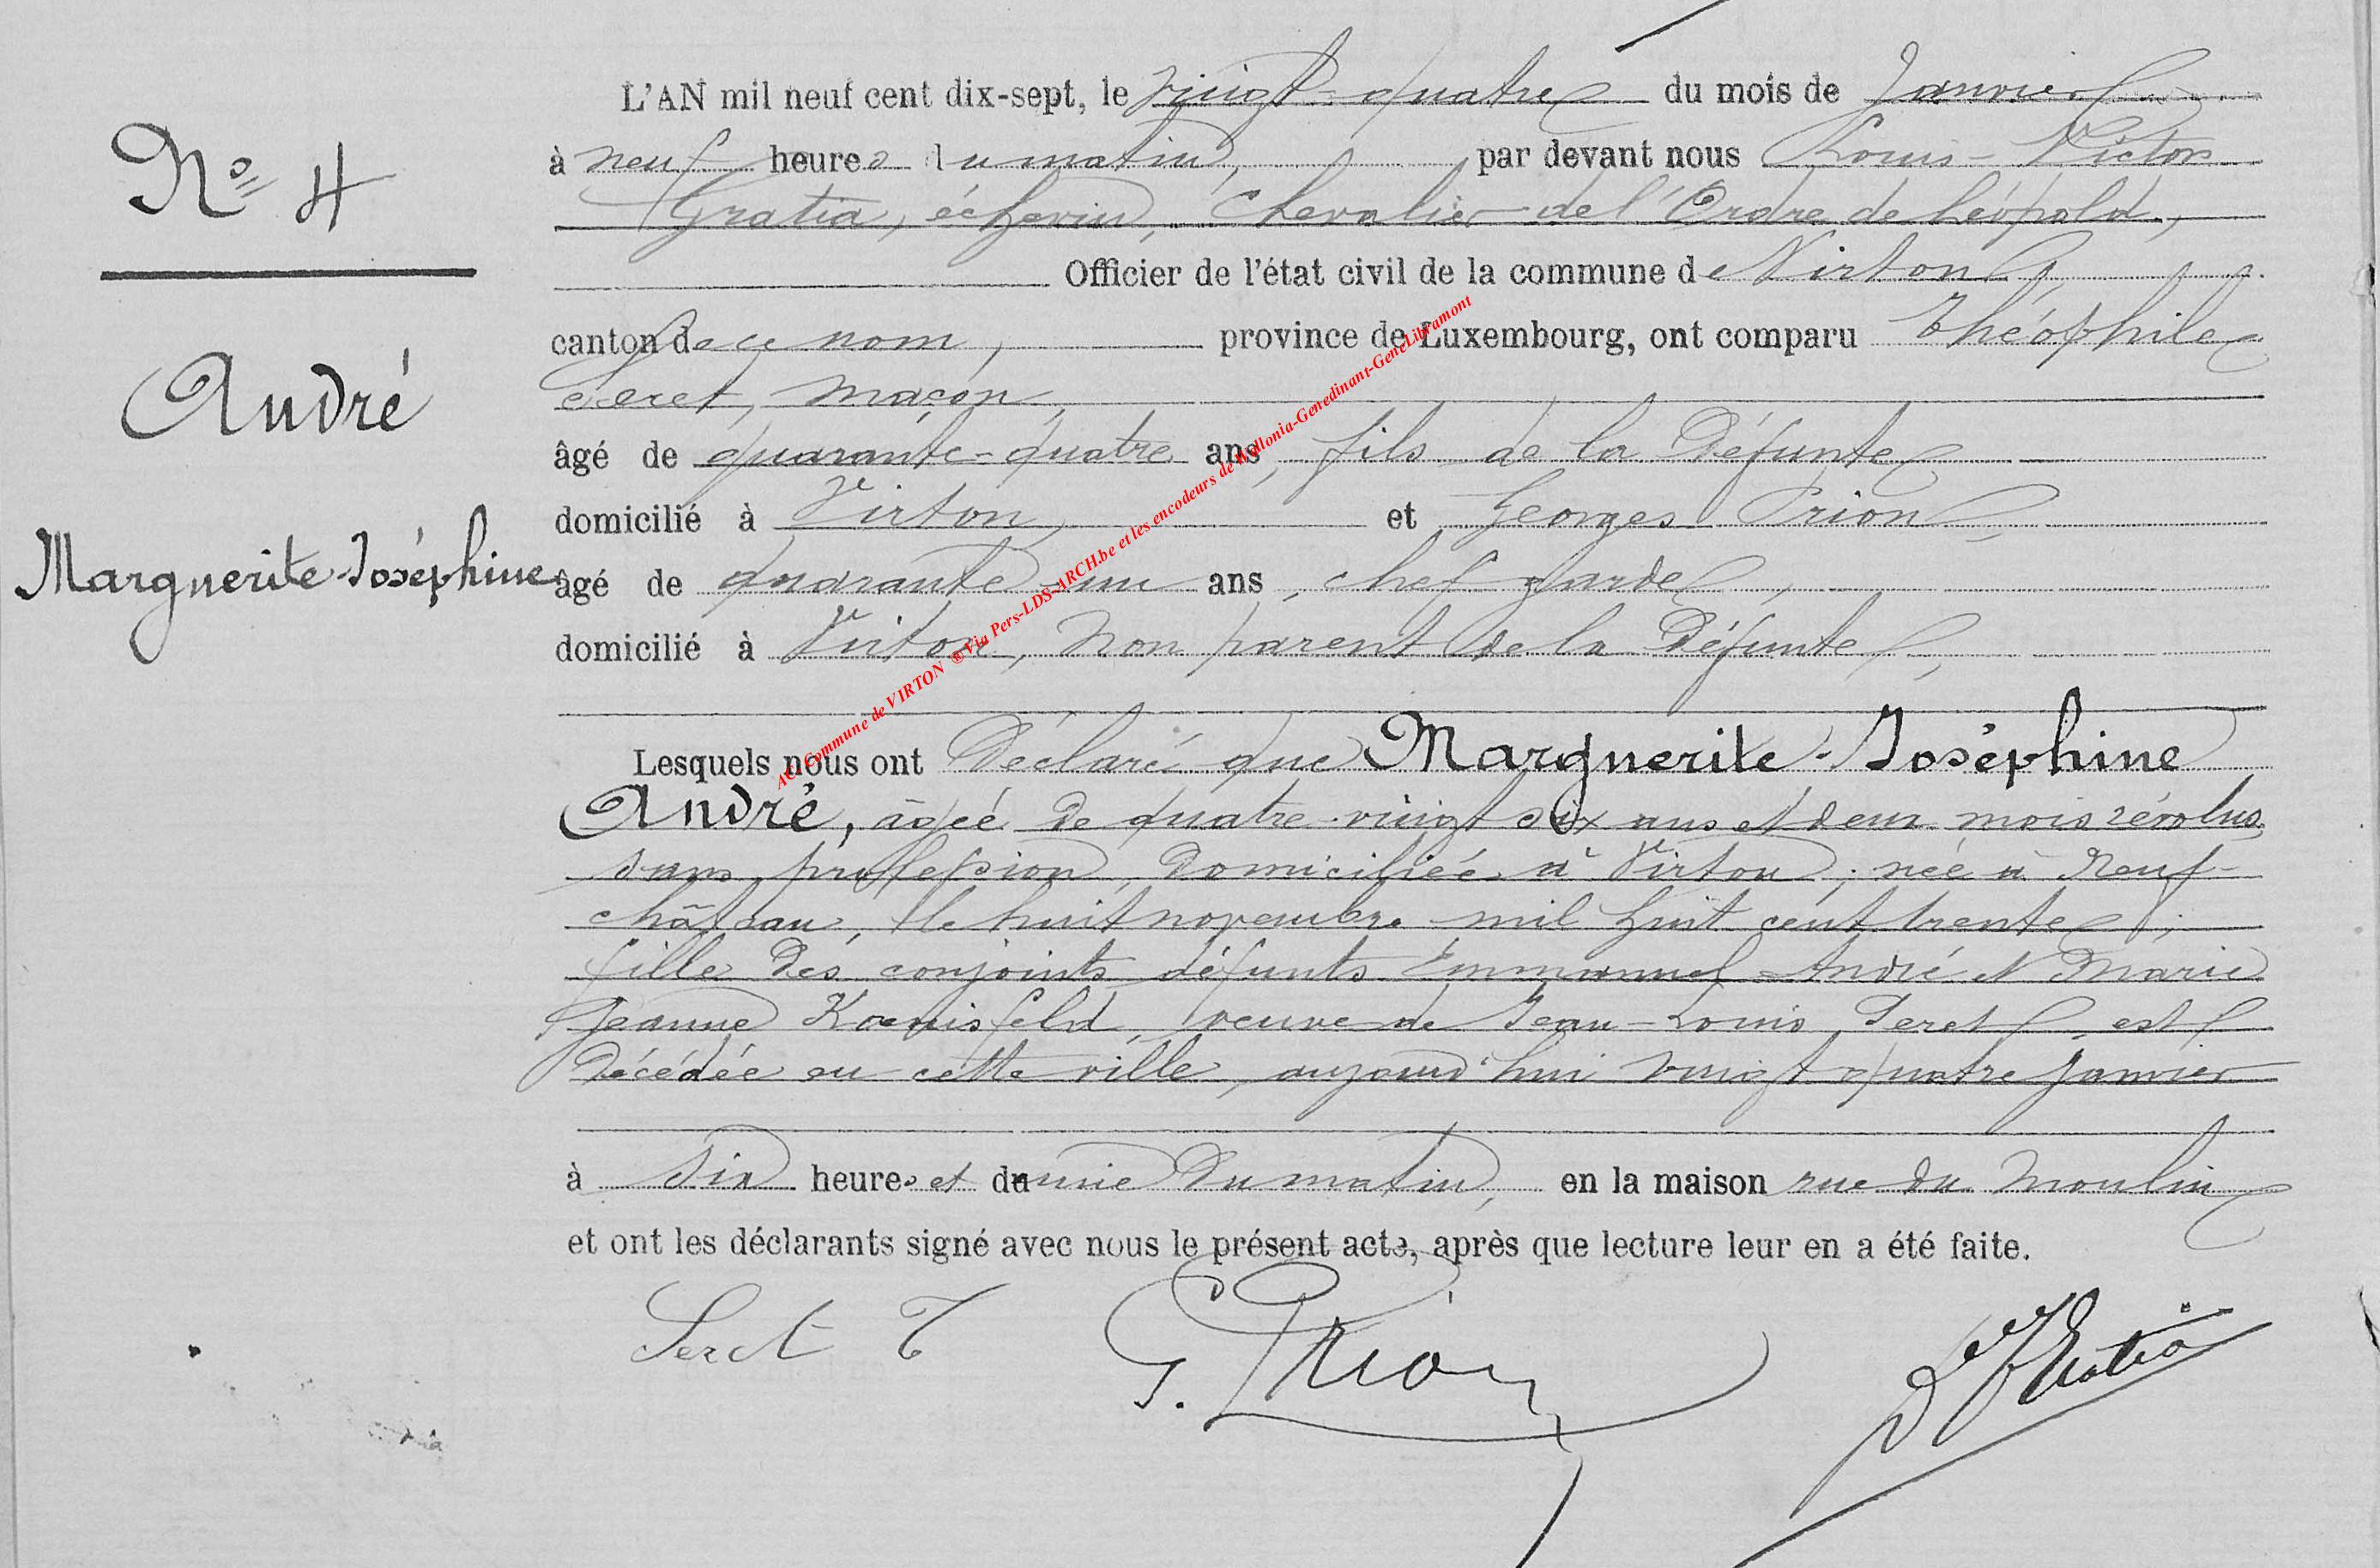 L'AN mil neuf cent dix-sept, le vingt-quatre du mois de Janvier
à neuf heures du matin, par devant nous Louis-Victor
Gratia, échevin, Chevalier de l'Ordre de Léopold,
Officier de l'état civil de la commune de Virton,
canton de ce nom, province de Luxembourg, ont comparu Théophile
Seret, maçon,
âgé de quarante-quatre ans, fils de la Défunte
domicilié à Virton, et Georges Prion,
âgé de quarante-un ans, chef garde,
domicilié à Virton, non parent de la Défunte,
Lesquels nous ont Déclaré que Marguerite-Joséphine
André, âgée de quatre-vingt six ans et deux mois révolus
sans profession, Domiciliée à Virton; née à Neuf-
château, le huit novembre mil huit cent trente;
fille des conjoints défunts Emmanuel André et Marie
Jeanne Koenisfeld, veuve de Jean-Louis Seret, est
Décédée en cette ville, aujourd'hui vingt quatre janvier
à six heures et demie du matin, en la maison rue du Moulin
et ont les déclarants signé avec nous le présent acte, après que lecture leur en a été faite.
Seret T
G. Prion
LV Gratia
No 4
André
Marguerite-Joséphine
AC Commune de VIRTON ©Via Pers-LDS-ARCH.be et les encodeurs de Wallonia-Genedinant-GeneLibramont